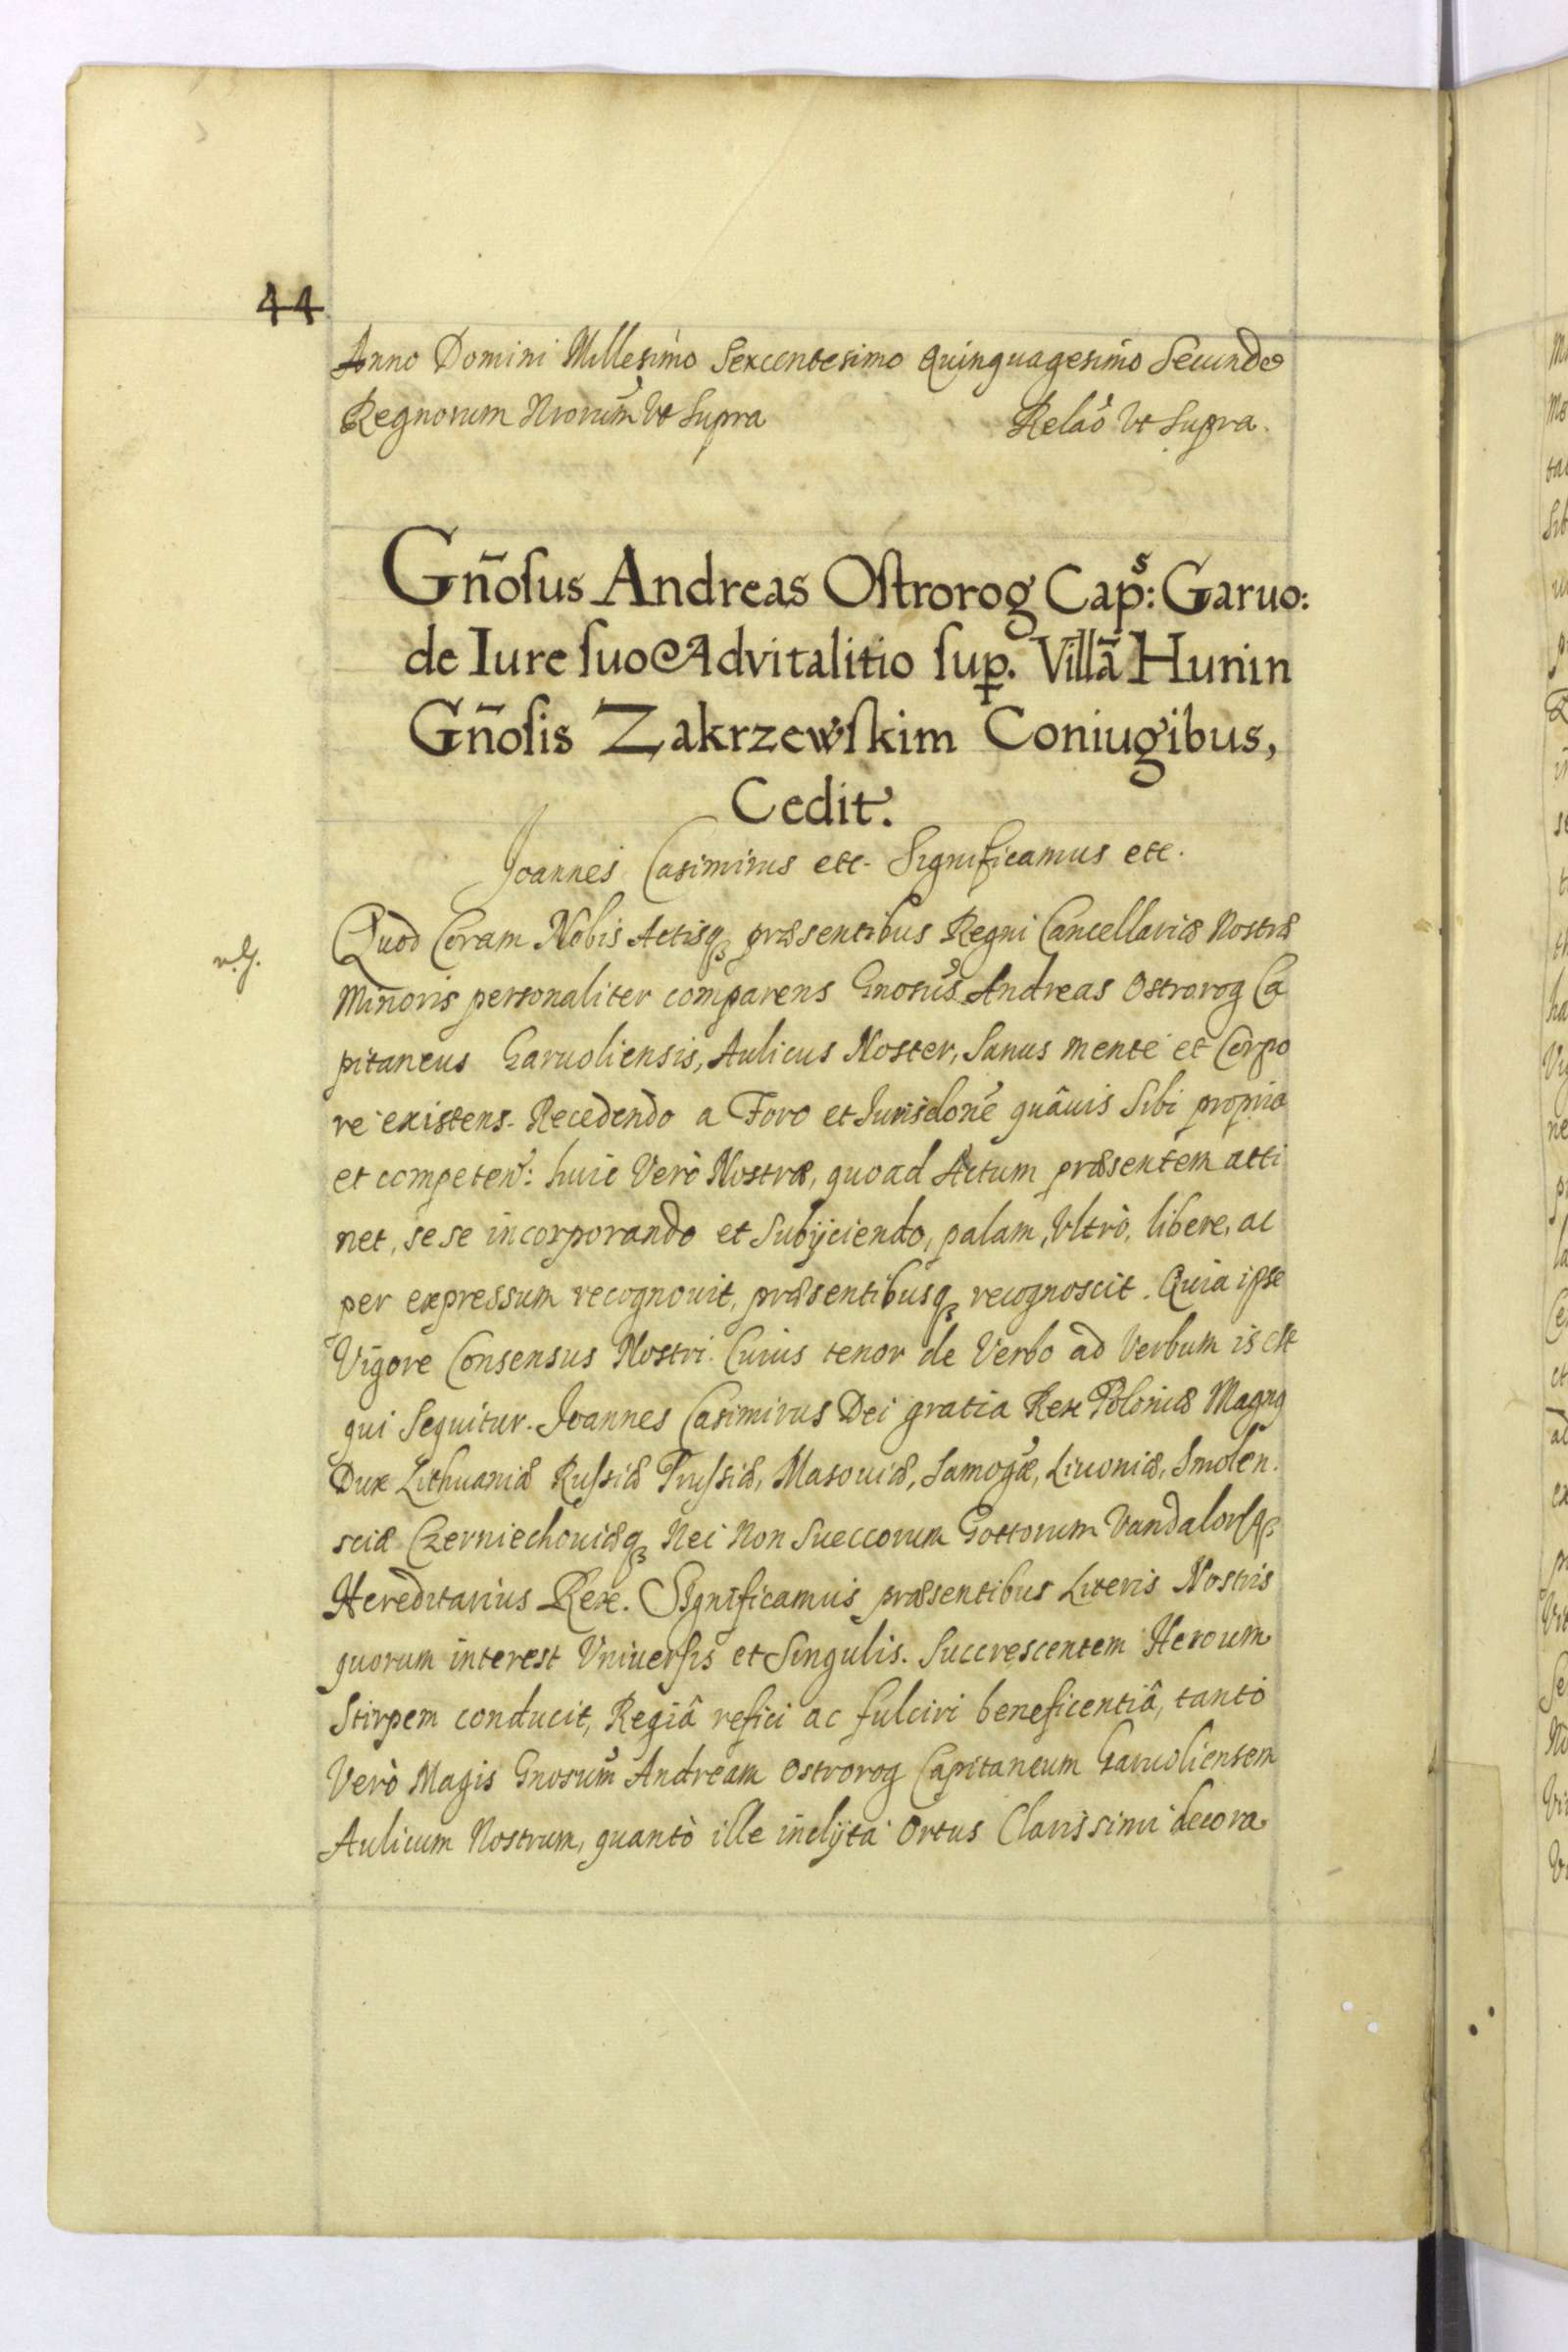 44
Anno Domini Millesimo Sexcentesimo Quinquagesimo Secundo
Regnorum Nrorum Vt Supra Relao Vt Supra.
Gñosus Andreas Ostrorog Caps: Garuo:
de Iure suo Advitalitio sup. Villã Hunin
Gñosis Zakrzewskim Coniugibus,
Cedit.
Joannes Casimirus etc. Significamus etc.
Quod Coram Nobis Actisq præsentibus Regni Cancellariæ Nostræ
Minoris personaliter comparens Gnosus Andreas Ostrorog Ca
pitaneus Garuoliensis, Aulicus Noster, Sanus mente et Corpo
re existens. Recedendo a Foro et Jurisdone quâuis Sibi propria
et competen: huic Verò Nostræ, quoad Actum præsentem atti
net, sese incorporando et Subijciendo, palam, Vltrò, libere, ac
per expressum recognouit, præsentibusq recognoscit. Quia ipse
Vigore Consensus Nostri. Cuius tenor de Verbo ad Verbum is est
qui Sequitur. Joannes Casimirus Dei gratia Rex Poloniæ Magng
Dux Lithuaniæ Russiæ Prussiæ, Masouiæ, Samogæ, Liuoniæ, Smolen.
sciæ Czerniechouiæq Nec Non Sueccorum Gottorum Vandalorq
Hereditarius Rex. Significamus præsentibus Literis Nostris
quorum interest Vniuersis et Singulis. Succrescentem Heroum
Stirpem conducit, Regiâ refici ac fulciri beneficentiâ, tantò
Verò Magis Gnosum Andream Ostrorog Capitaneum Garuoliensem
Aulicum Nostrum, quantò ille inclÿta Ortus Clarissimi decora